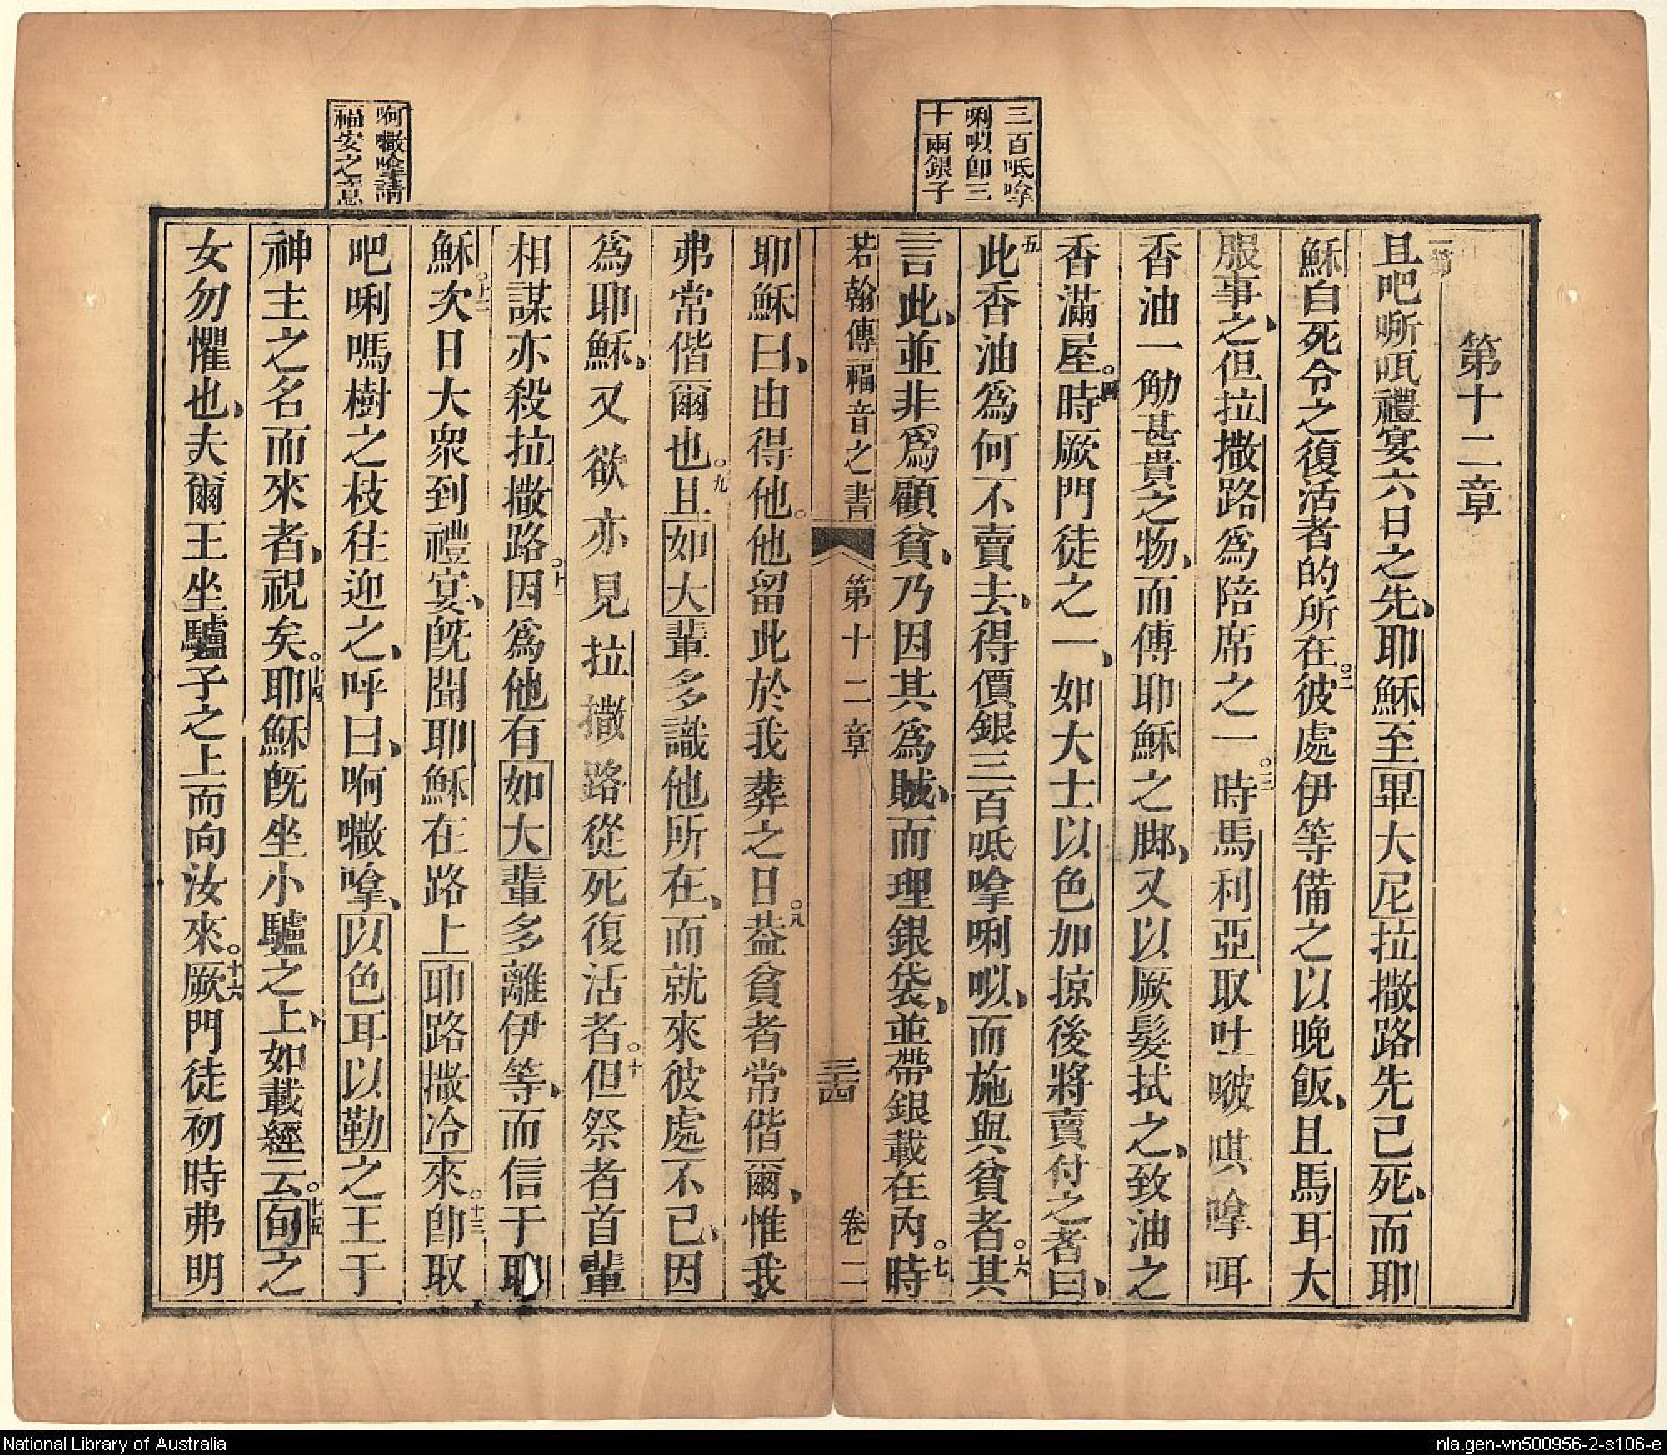 三百呧嗱
唎㕥即三
十兩銀子
啊𡄖嗱請
福安之意
第十二章
一節
且吧嘶㖸禮宴六日之先、耶穌至畢大尼拉撒路先已死、而耶
穌自死令之復活者的所在。二彼處伊等備之以晚飯、且馬耳大
服事之、但拉撒路爲陪席之一。三時馬利亞取吐啵唭嗱咡
香油一觔甚貴之物、而傅耶穌之脚、又以厥髮拭之、致油之
香滿屋。四時厥門徒之一、如大士以色加掠後將賣付之者曰、
五此香油爲何不賣去、得價銀三百呧嗱唎㕥、而施與貧者。六其
言此、並非爲顧貧、乃因其爲賊、而理銀袋、並帶銀載在內。七時
若翰傳福音之書 第十二章 三十四 卷二
耶穌曰、由得他。他留此於我葬之日。八葢貧者常偕爾、惟我
弗常偕爾也。九且如大輩多識他所在、而就來彼處不已、因
爲耶穌、又欲亦見拉撒路從死復活者。十但祭者首輩
相謀亦殺拉撒路。十一因爲他有如大輩多離伊等、而信于耶
穌。十二次日大衆到禮宴、旣聞耶穌在路上耶路撒冷來。十三卽取
吧唎嗎樹之枝往迎之、呼曰、啊𡄖嗱、以色耳以勒之王于
神主之名而來者、祝矣。十四耶穌旣坐小驢之上、如載經云。十五旬之
女勿懼也、夫爾王坐驢子之上而向汝來。十六厥門徒初時弗明
National Library of Australia
nla.gen-vn500956-2-s106-e